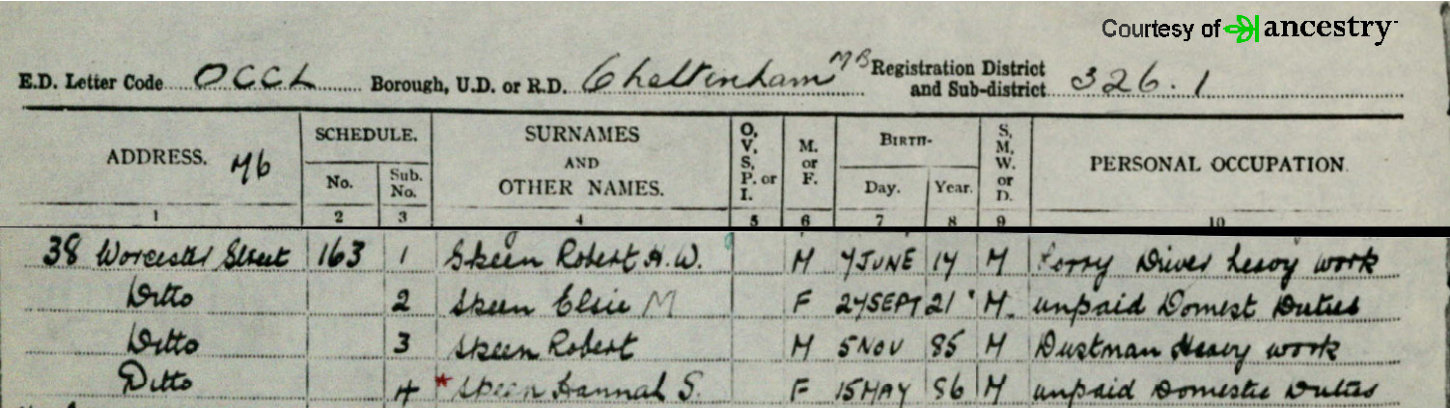 Courtesy of ancestry
E.D. Letter Code OCCL Borough, U.D. or R.D. Cheltenham MB Registration District and Sub-district 326.1
ADDRESS. MB SCHEDULE. No. Sub. No. SURNAMES AND OTHER NAMES. O, V, S, P. or I. M. or F. BIRTH- Day. Year. S, M, W. or D. PERSONAL OCCUPATION.
1 2 3 4 5 6 7 8 9 10
38 Worcester Street 163 1 Skeen Robert H.W. M 7 JUNE 14 M Lorry Driver heavy work
Ditto 2 Skeen Elsie M F 27 SEPT 21 M. unpaid Domest Duties
Ditto 3 Skeen Robert M 5 NOV 85 M Dustman Heavy work
Ditto 4 * Skeen Hannah S. F 15 MAY 86 M unpaid Domestic Duties